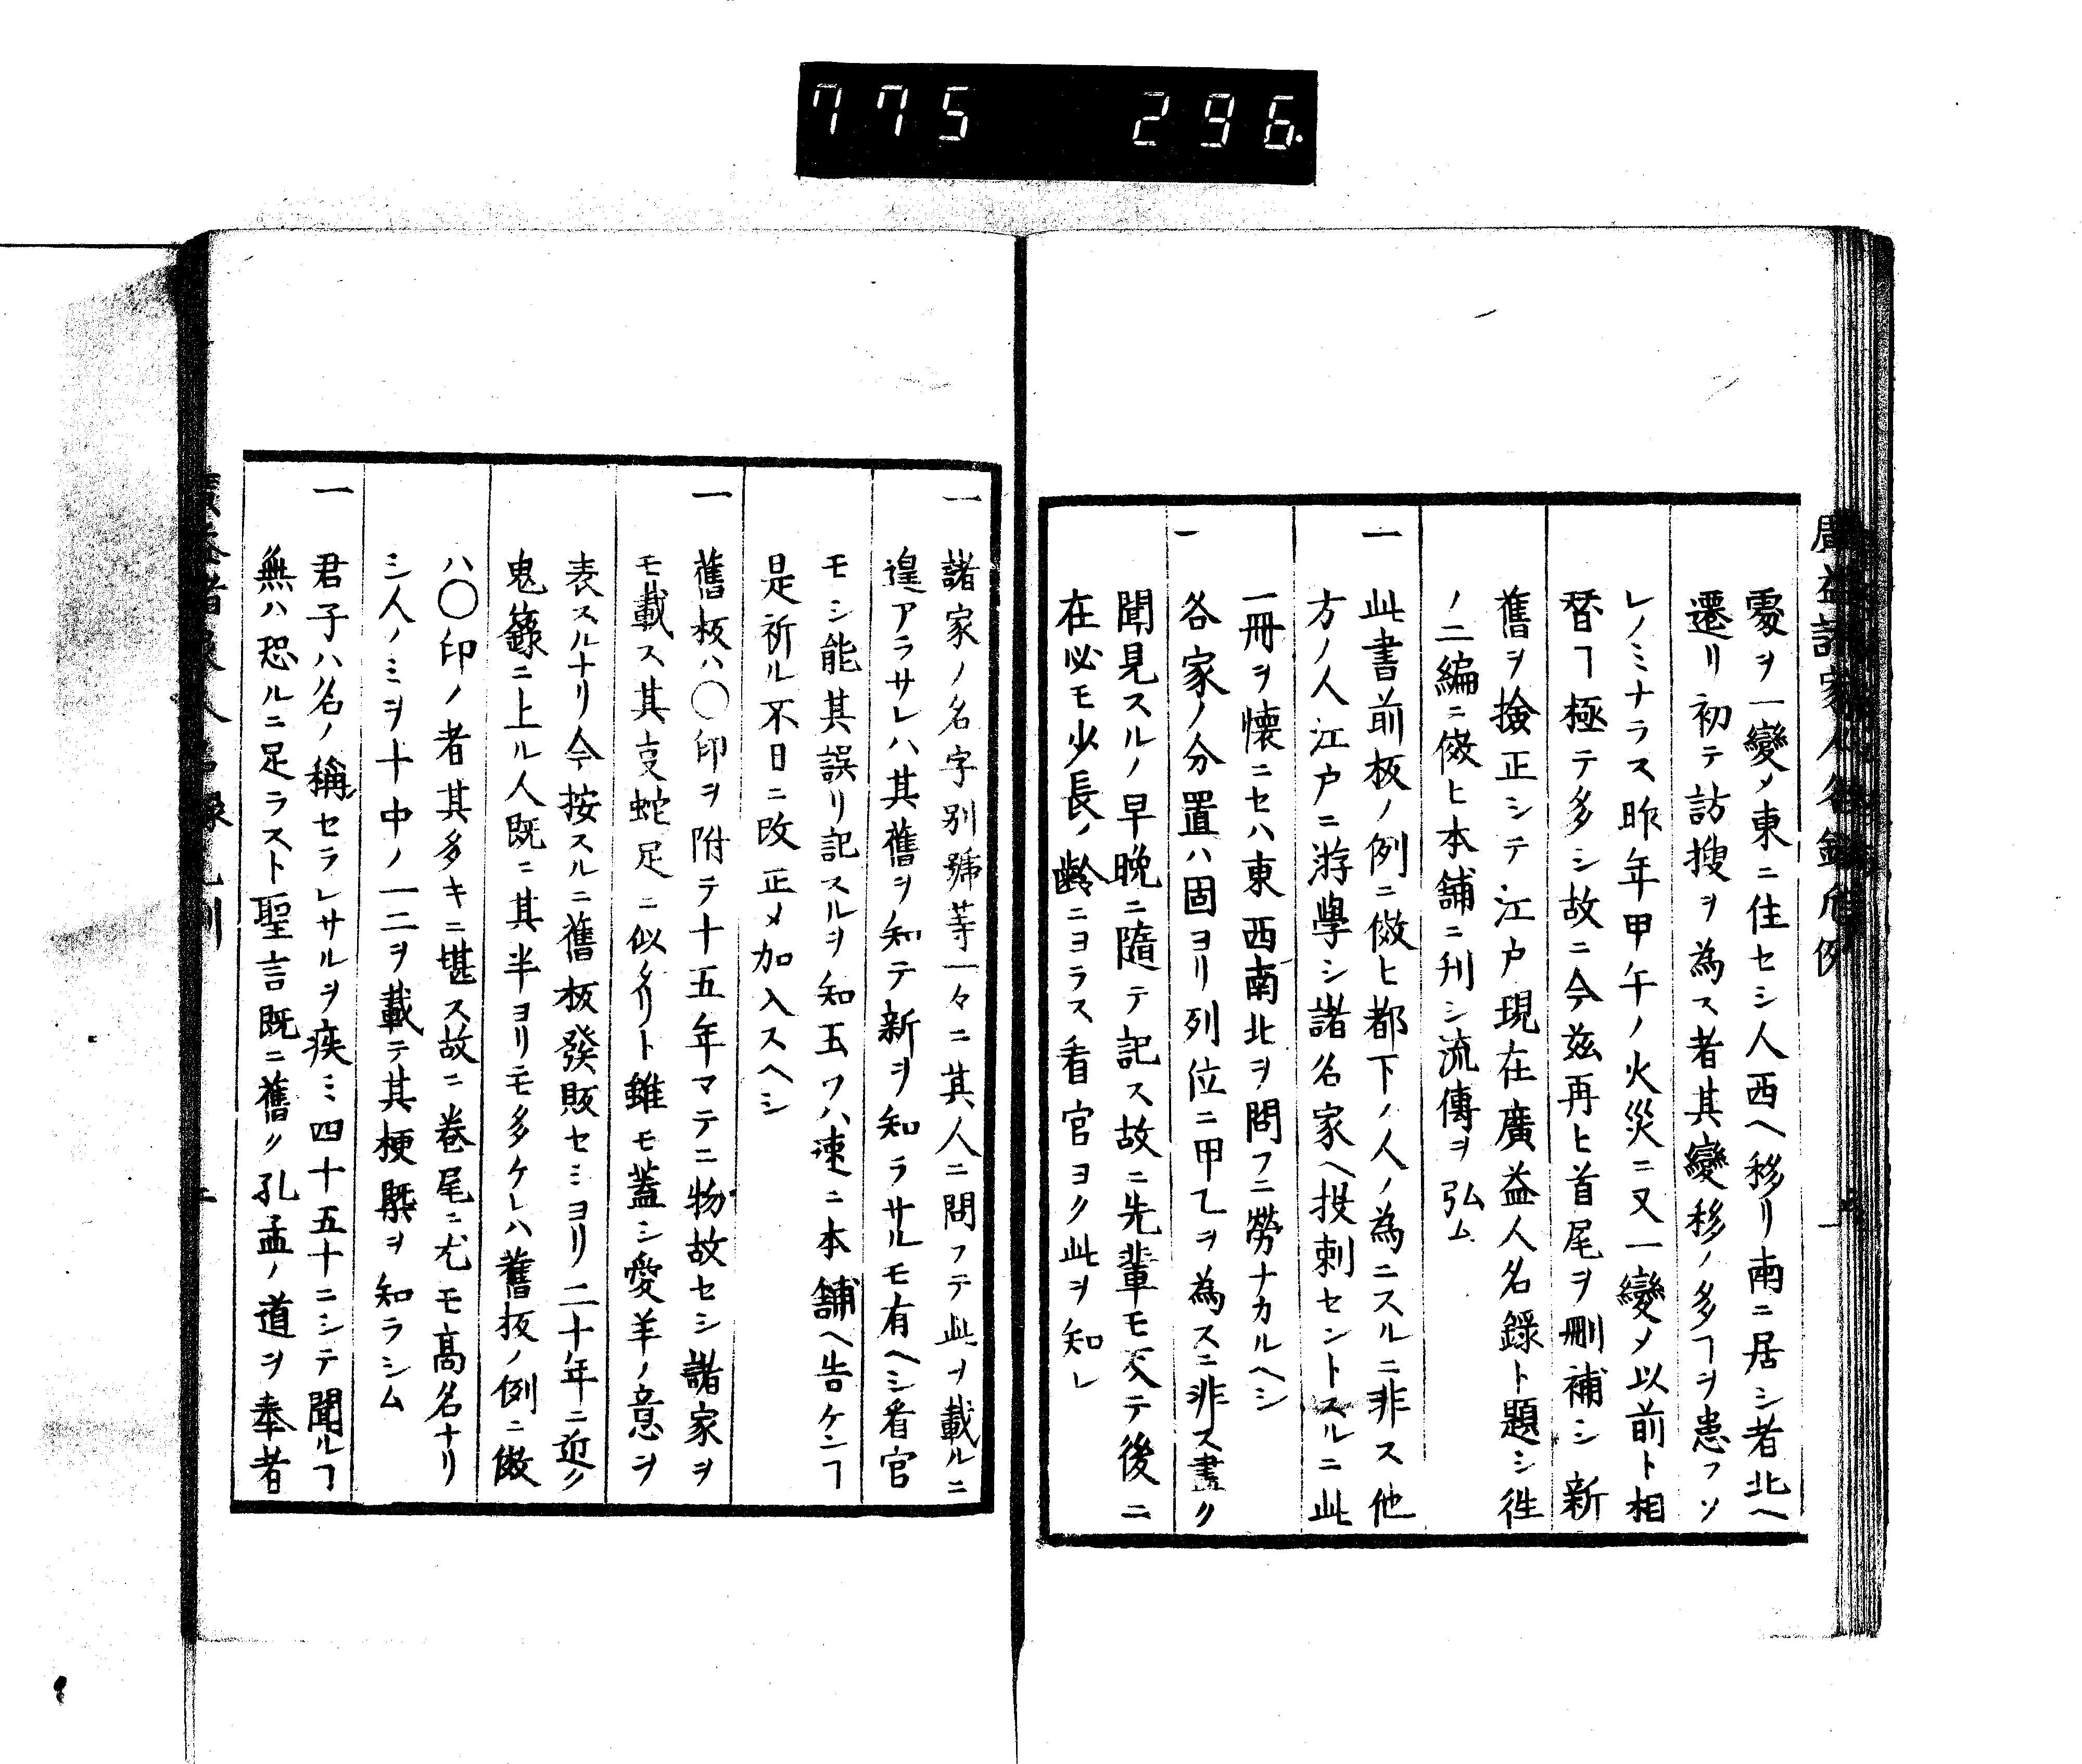 775 296
處ヲ一變ノ東ニ住セシ人西ヘ移リ南ニ居シ者北ヘ
遷リ初テ訪搜ヲ為ス者其變移ノ多ヿヲ患フソ
レノミナラス昨年甲午ノ火災ニ又一變メ以前ト相
替ヿ極テ多シ故ニ今茲再ヒ首尾ヲ刪補シ新
舊ヲ撿正シテ江戸現在廣益人名錄ト題シ徃
ノ二編ニ傚ヒ本舗ニ刋シ流傳ヲ弘ム
一 此書前板ノ例ニ傚ヒ都下ノ人ノ為ニスルニ非ス他
方ノ人江戸ニ游學シ諸名家ヘ投刺セントスルニ此
一冊ヲ懐ニセハ東西南北ヲ問フニ勞ナカルヘシ
一 各家ノ分置ハ固ヨリ列位ニ甲乙ヲ為スニ非ス盡ク
聞見スルノ早晩ニ隨テ記ス故ニ先輩モ反テ後ニ
在必モ少長ノ齢ニヨラス看官ヨク此ヲ知レ
一 諸家ノ名字別號等一々ニ其人ニ問フテ此ヲ載ルニ
遑アラサレハ其舊ヲ知テ新ヲ知ラサルモ有ヘシ看官
モシ能其誤リ記スルヲ知玉フハ速ニ本舗ヘ告ケンヿ
是祈ル不日ニ改正メ加入スヘシ
一 舊板ハ〇印ヲ附テ十五年マテニ物故セシ諸家ヲ
モ載ス其叓蛇足ニ似タリト雖モ蓋シ愛羊ノ意ヲ
表スルナリ今按スルニ舊板發販セミヨリ二十年ニ近ク
鬼籙ニ上ル人既ニ其半ヨリモ多ケレハ舊板ノ例ニ傚
ハ〇印ノ者其多キニ堪ス故ニ巻尾ニ尤モ髙名ナリ
シ人ノミヲ十中ノ一二ヲ載テ其梗槩ヲ知ラシム
一 君子ハ名ノ稱セラレサルヲ疾ミ四十五十ニシテ聞ルヿ
無ハ恐ルニ足ラスト聖言既ニ舊ク孔孟ノ道ヲ奉者